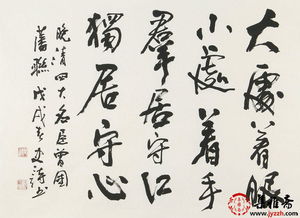 大處着眼
小處着手
羣居守口
獨居守心
晚清四大名臣曾國
藩聯戊戌
www.jyzzh.com